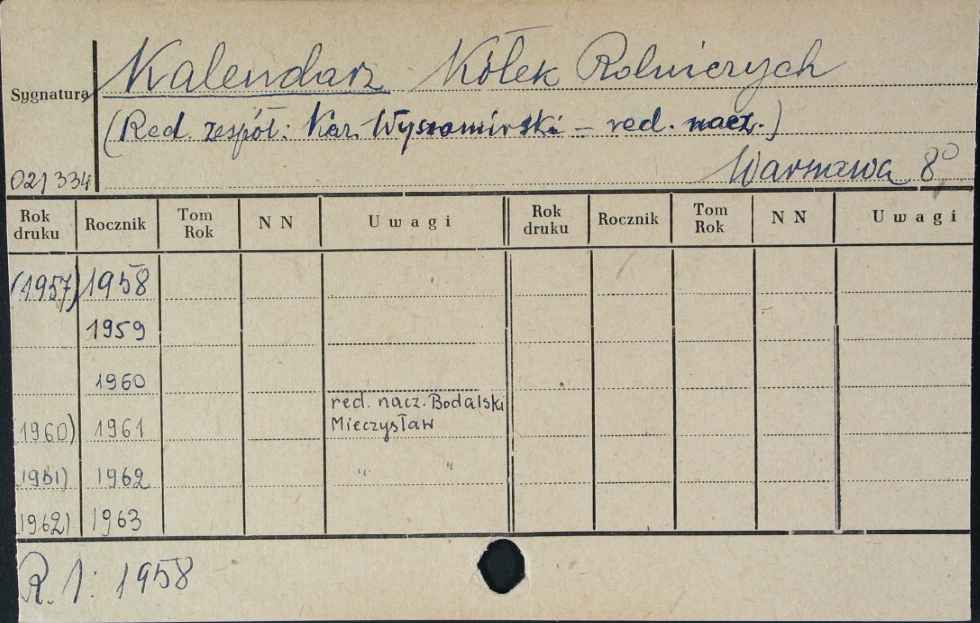 Kalendarz Kółek Rolniczych
Sygnatura
(Red. zespół: Kaz. Wyszomirski – red. nacz.)
Warszawa 8°
021334
Rok druku Rocznik Tom Rok N N Uwagi Rok druku Rocznik Tom Rok N N Uwagi
(1957) 1958
1959
1960
red. nacz. Bodalski
(1960) 1961 Mieczysław
(1961) 1962 " "
(1962) 1963
R. 1: 1958